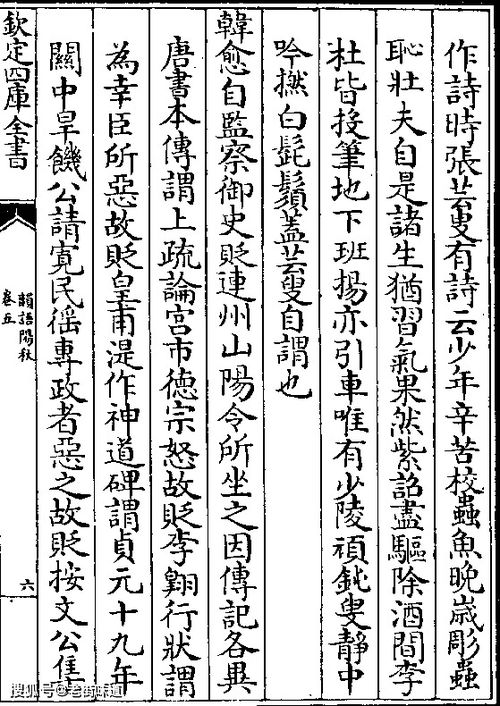 作詩時張芸叟有詩云少年辛苦校蟲魚晚歲彫蟲
恥壯夫自是諸生猶習氣果然紫詔盡驅除酒間李
杜皆投筆地下班揚亦引車唯有少陵頑鈍叟靜中
吟撚白髭鬚蓋芸叟自謂也
韓愈自監察御史貶連州山陽令所坐之因傳記各異
唐書本傳謂上疏論宮市德宗怒故貶李翺行狀謂
為幸臣所惡故貶皇甫湜作神道碑謂貞元十九年
關中旱饑公請寛民徭專政者惡之故貶按文公集
欽定四庫全書
韻語陽秋
卷五
六
搜狐号@老街味道